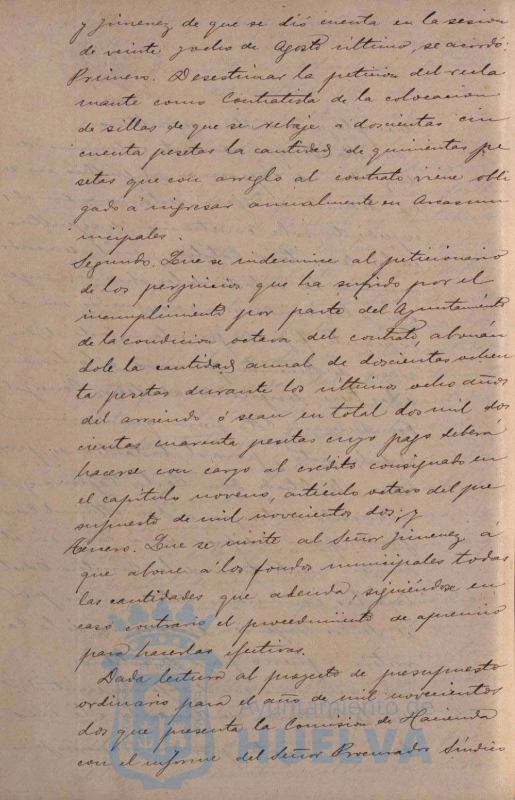 y Jimenez de que se dió cuenta en la sesion
de veinte y ocho de Agosto último, se acordó:
Primero. Desestimar la peticion del recla
mante como Contratista de la colocacion
de sillas de que se rebaje a doscientas cin
cuenta pesetas la cantidad de quinientas pe
setas que con arreglo al contrato viene obli
gado á ingresar anualmente en Arcas mu
nicipales.
Segundo. Que se indemnice al peticionario
de los perjuicios que ha sufrido por el
incumplimiento por parte del Ayuntamiento
de la condicion octava del contrato, abonán
dole la cantidad anual de doscientas ochen
ta pesetas durante los últimos ocho años
del arriendo ó sean en total dos mil dos
cientas cuarenta pesetas cuyo pago deberá
hacerse con cargo al crédito consignado en
el capítulo noveno, artículo octavo del pre
supuesto de mil novecientos dos; y
Tercero. Que se invite al Señor Jimenez á
que abone á los fondos municipales todas
las cantidades que adeuda, siguiéndose en
caso contrario el procedimiento de apremio
para hacerlas efectivas.
Dada lectura al proyecto de presupuesto
ordinario para el año de mil novecientos
dos que presenta la Comision de Hacienda
con el informe del Señor Procurador Síndico
Ayuntamiento de
HUELVA